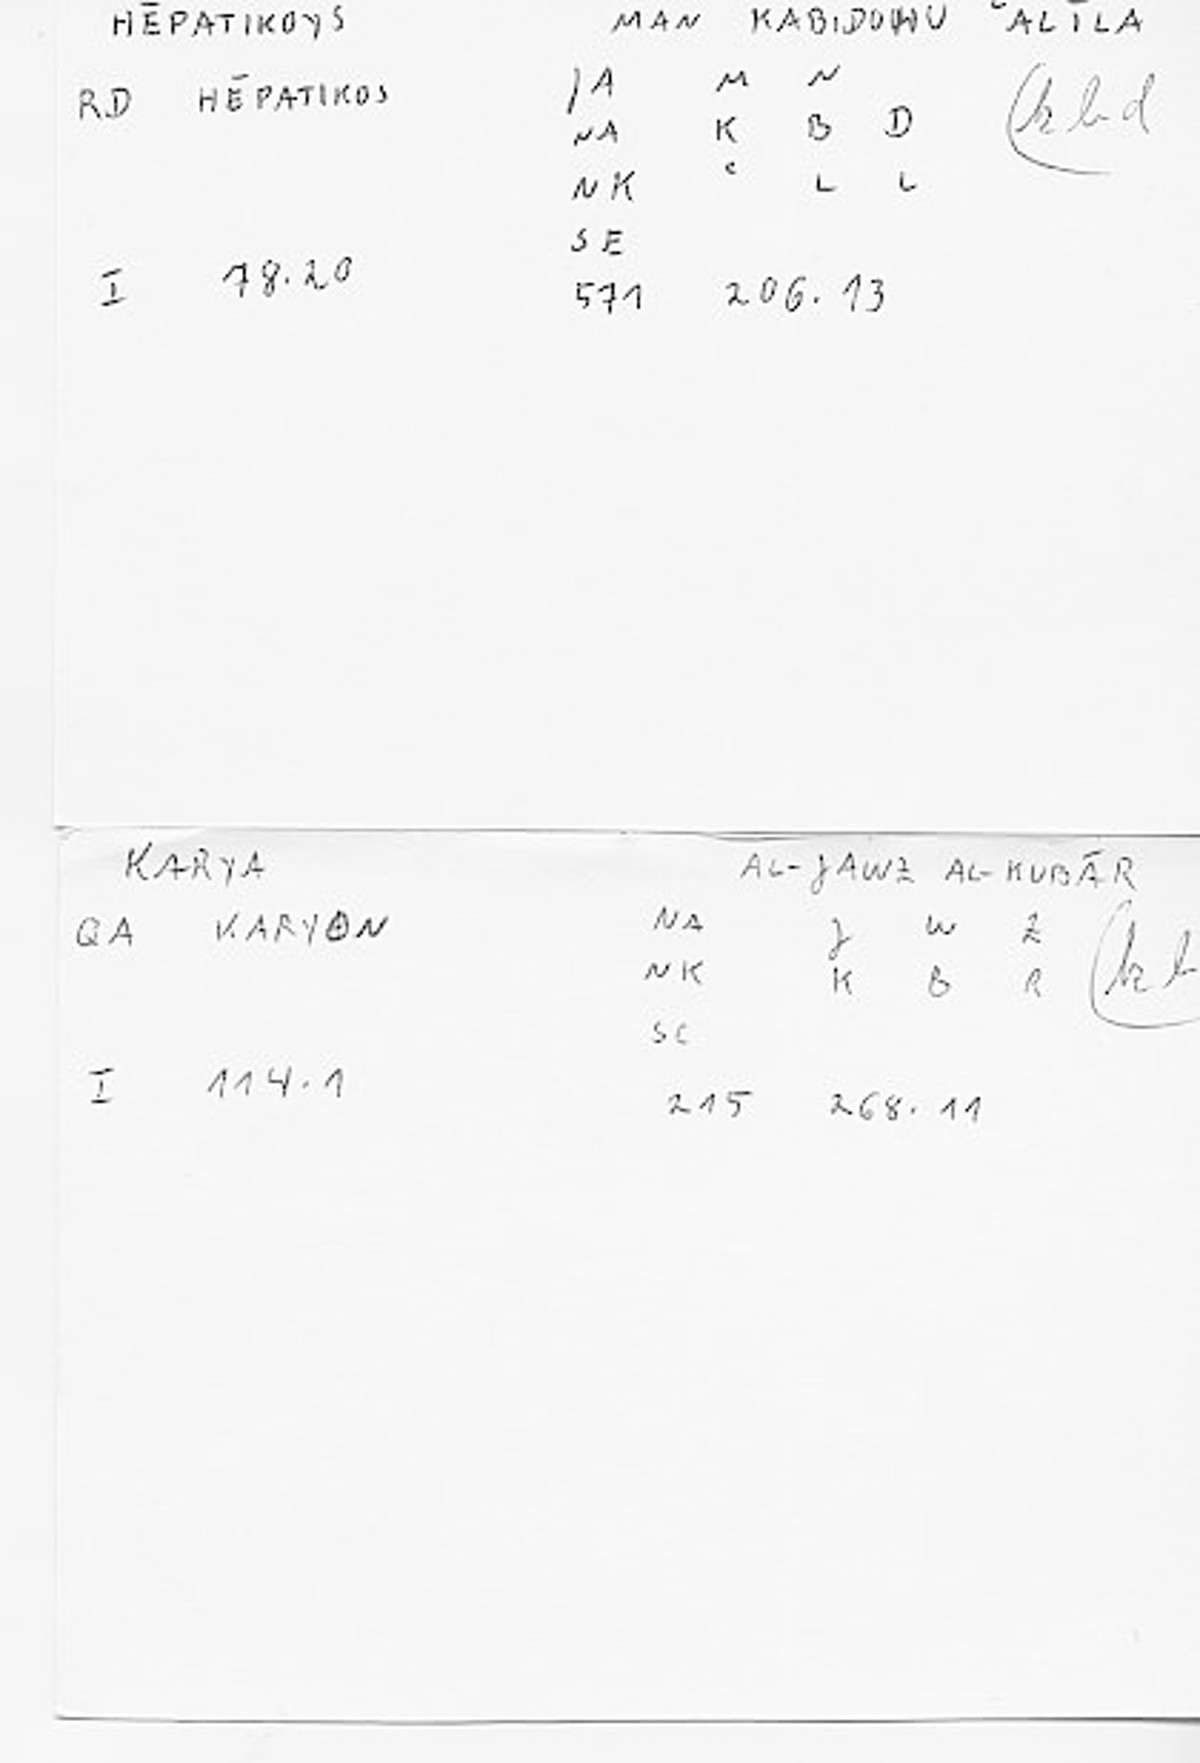 HĒPATIKOYS MAN KABIDOHU ʿALĪLA
RD HĒPATIKOS JA M N
NA K B D (kbd
NK ʿ L L
SE
I 78.20 571 206.13
KARYA AL-JAWZ AL-KUBĀR
QA KARYON NA J W Z
NK K B R (kb
SE
I 114.1 215 268.11